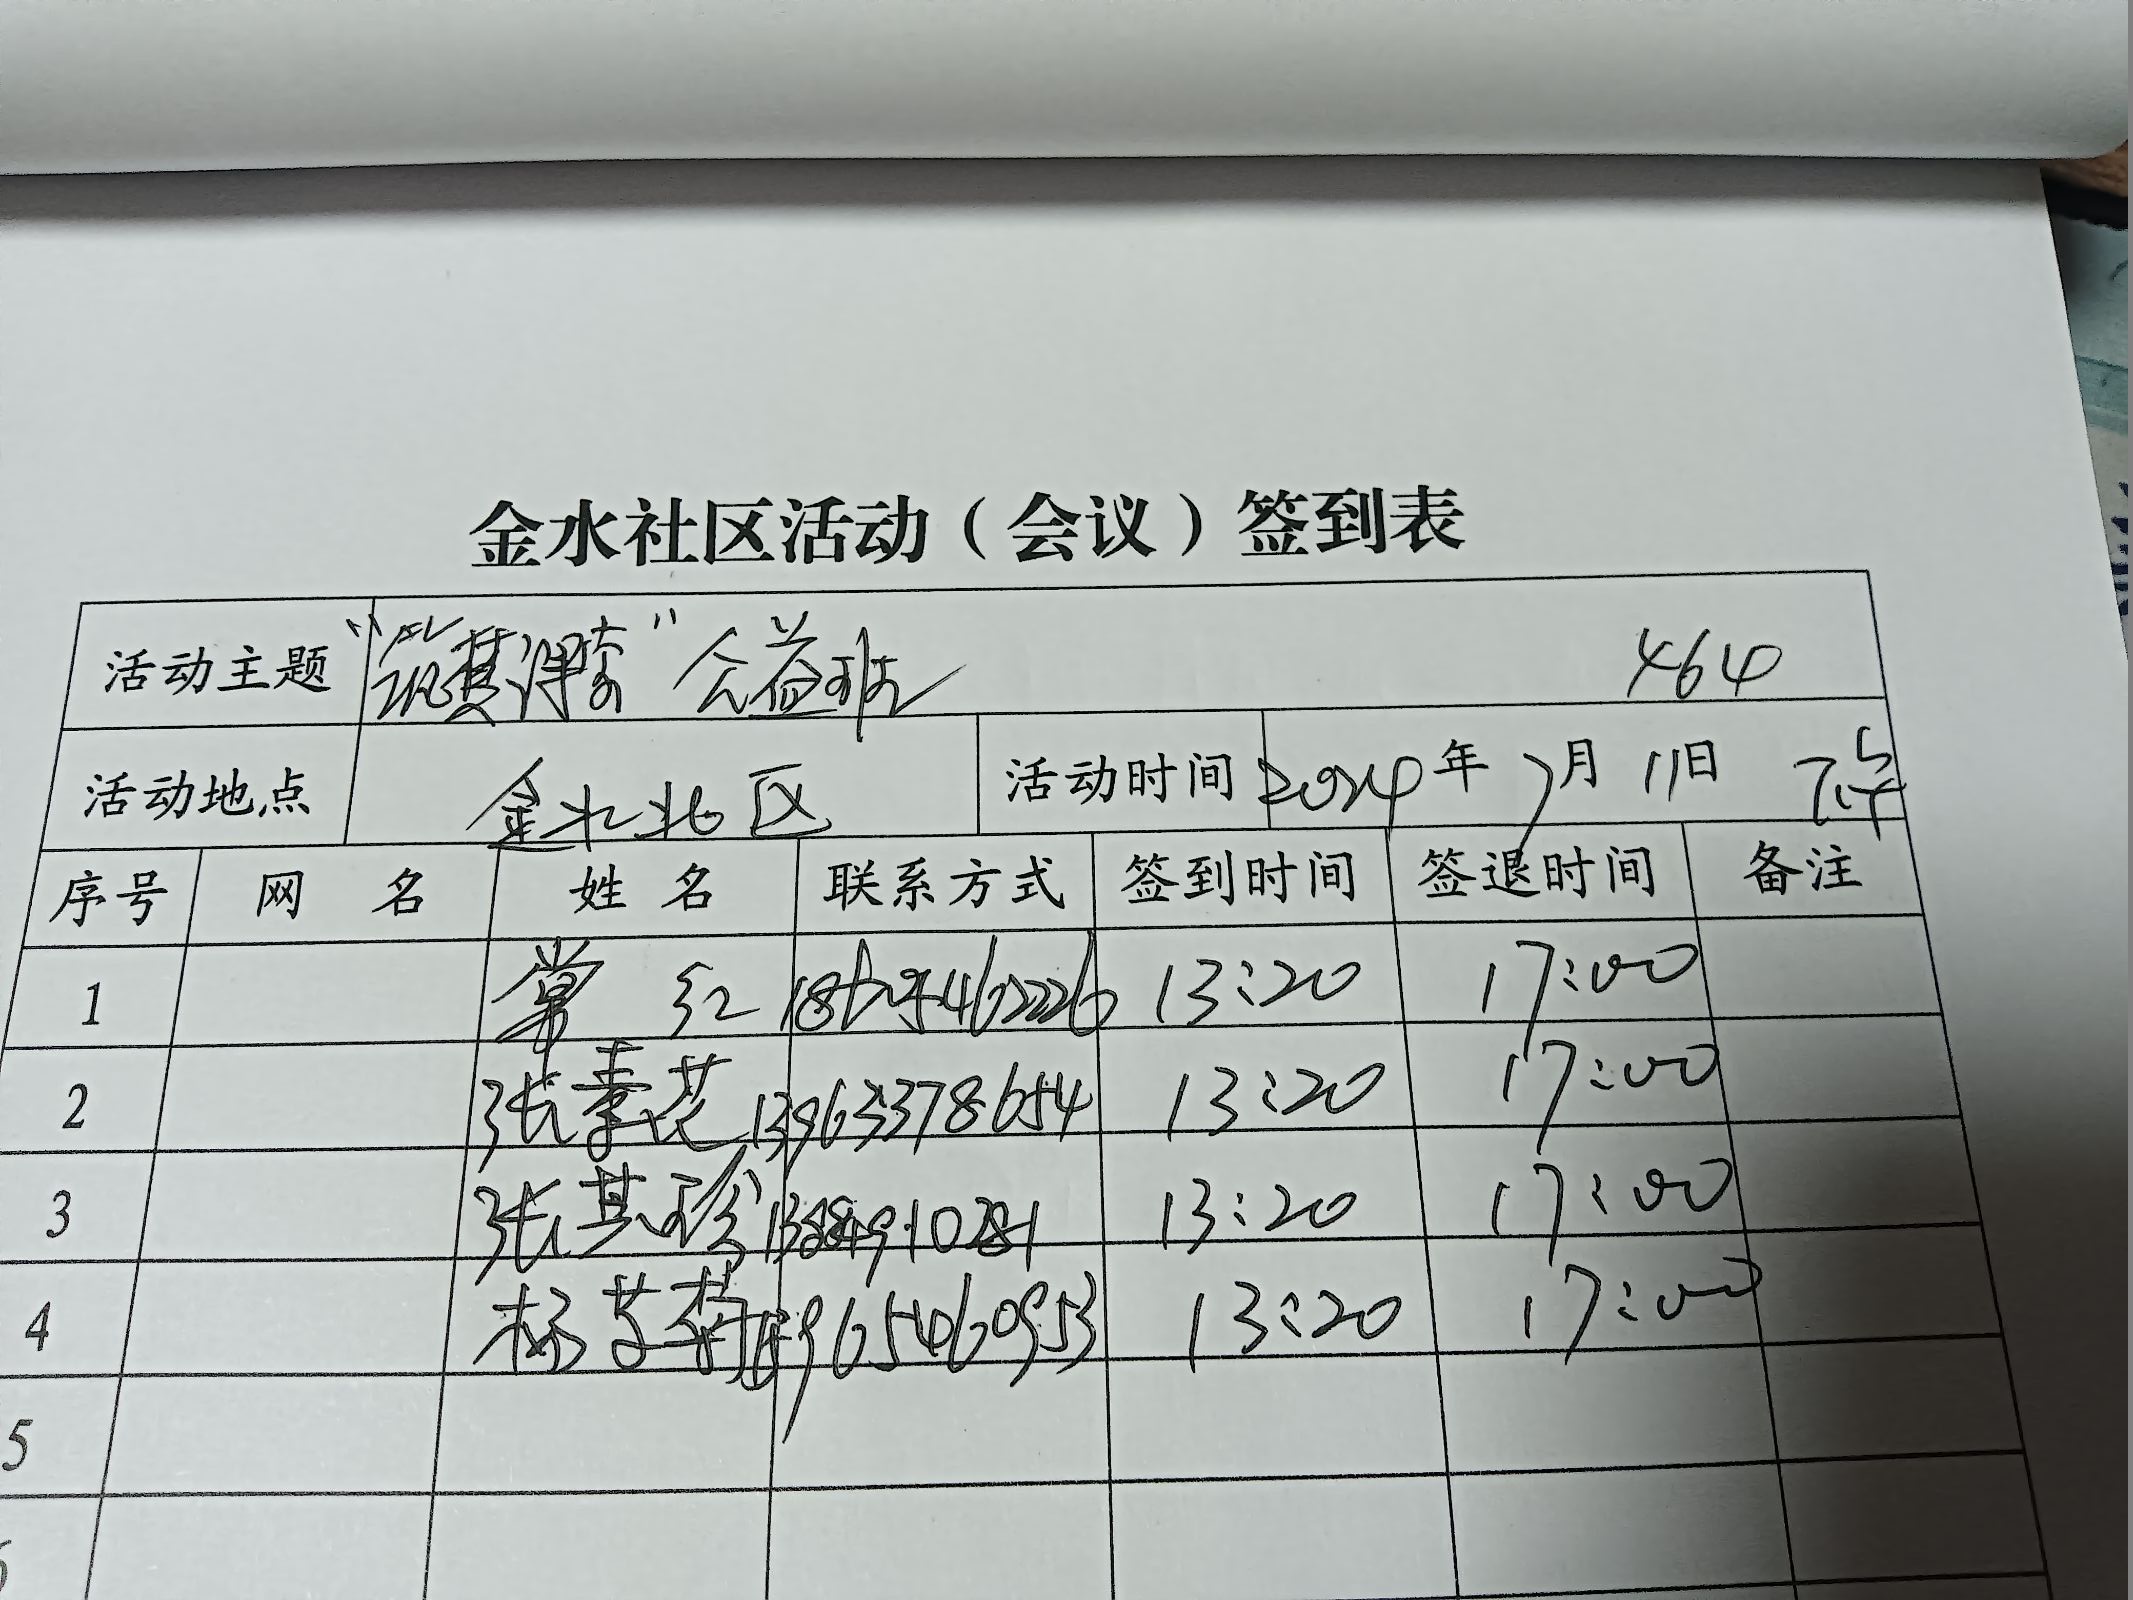 金水社区活动（会议）签到表
活动主题 " " 公益班 464
活动地点 金水北区 活动时间 2024年7月11日 下午
序号 网 名 姓 名 联系方式 签到时间 签退时间 备注
1 常 红 13:20 17:00
2 张素芝 13963378654 13:20 17:00
3 张其珍 13:20 17:00
4 杨艾 13:20 17:00
5
6